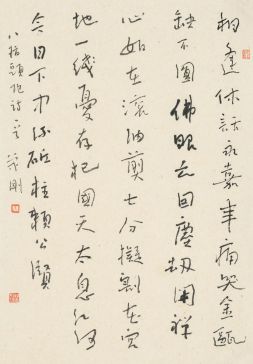 相逢休話永嘉年痛哭金甌
缺不圓佛眼回塵劫禪
心如在滾油煎分擬割
地一綫憂存杞國天太息江河
今日下中流砥柱賴公賢
八指頭陀詩一首